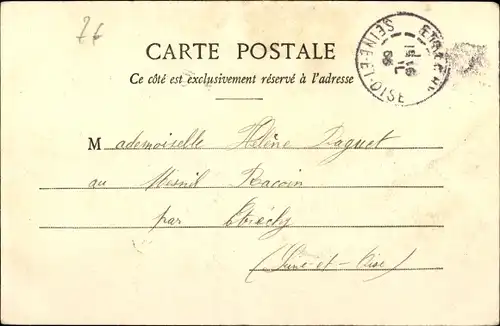 76
CARTE POSTALE
Ce côté est exclusivement réservé à l'adresse
SEINE-ET-OISE
Mademoiselle Hélène Paguet
au Mesnil Racoin
par Etréchy
(Seine-et-Oise)